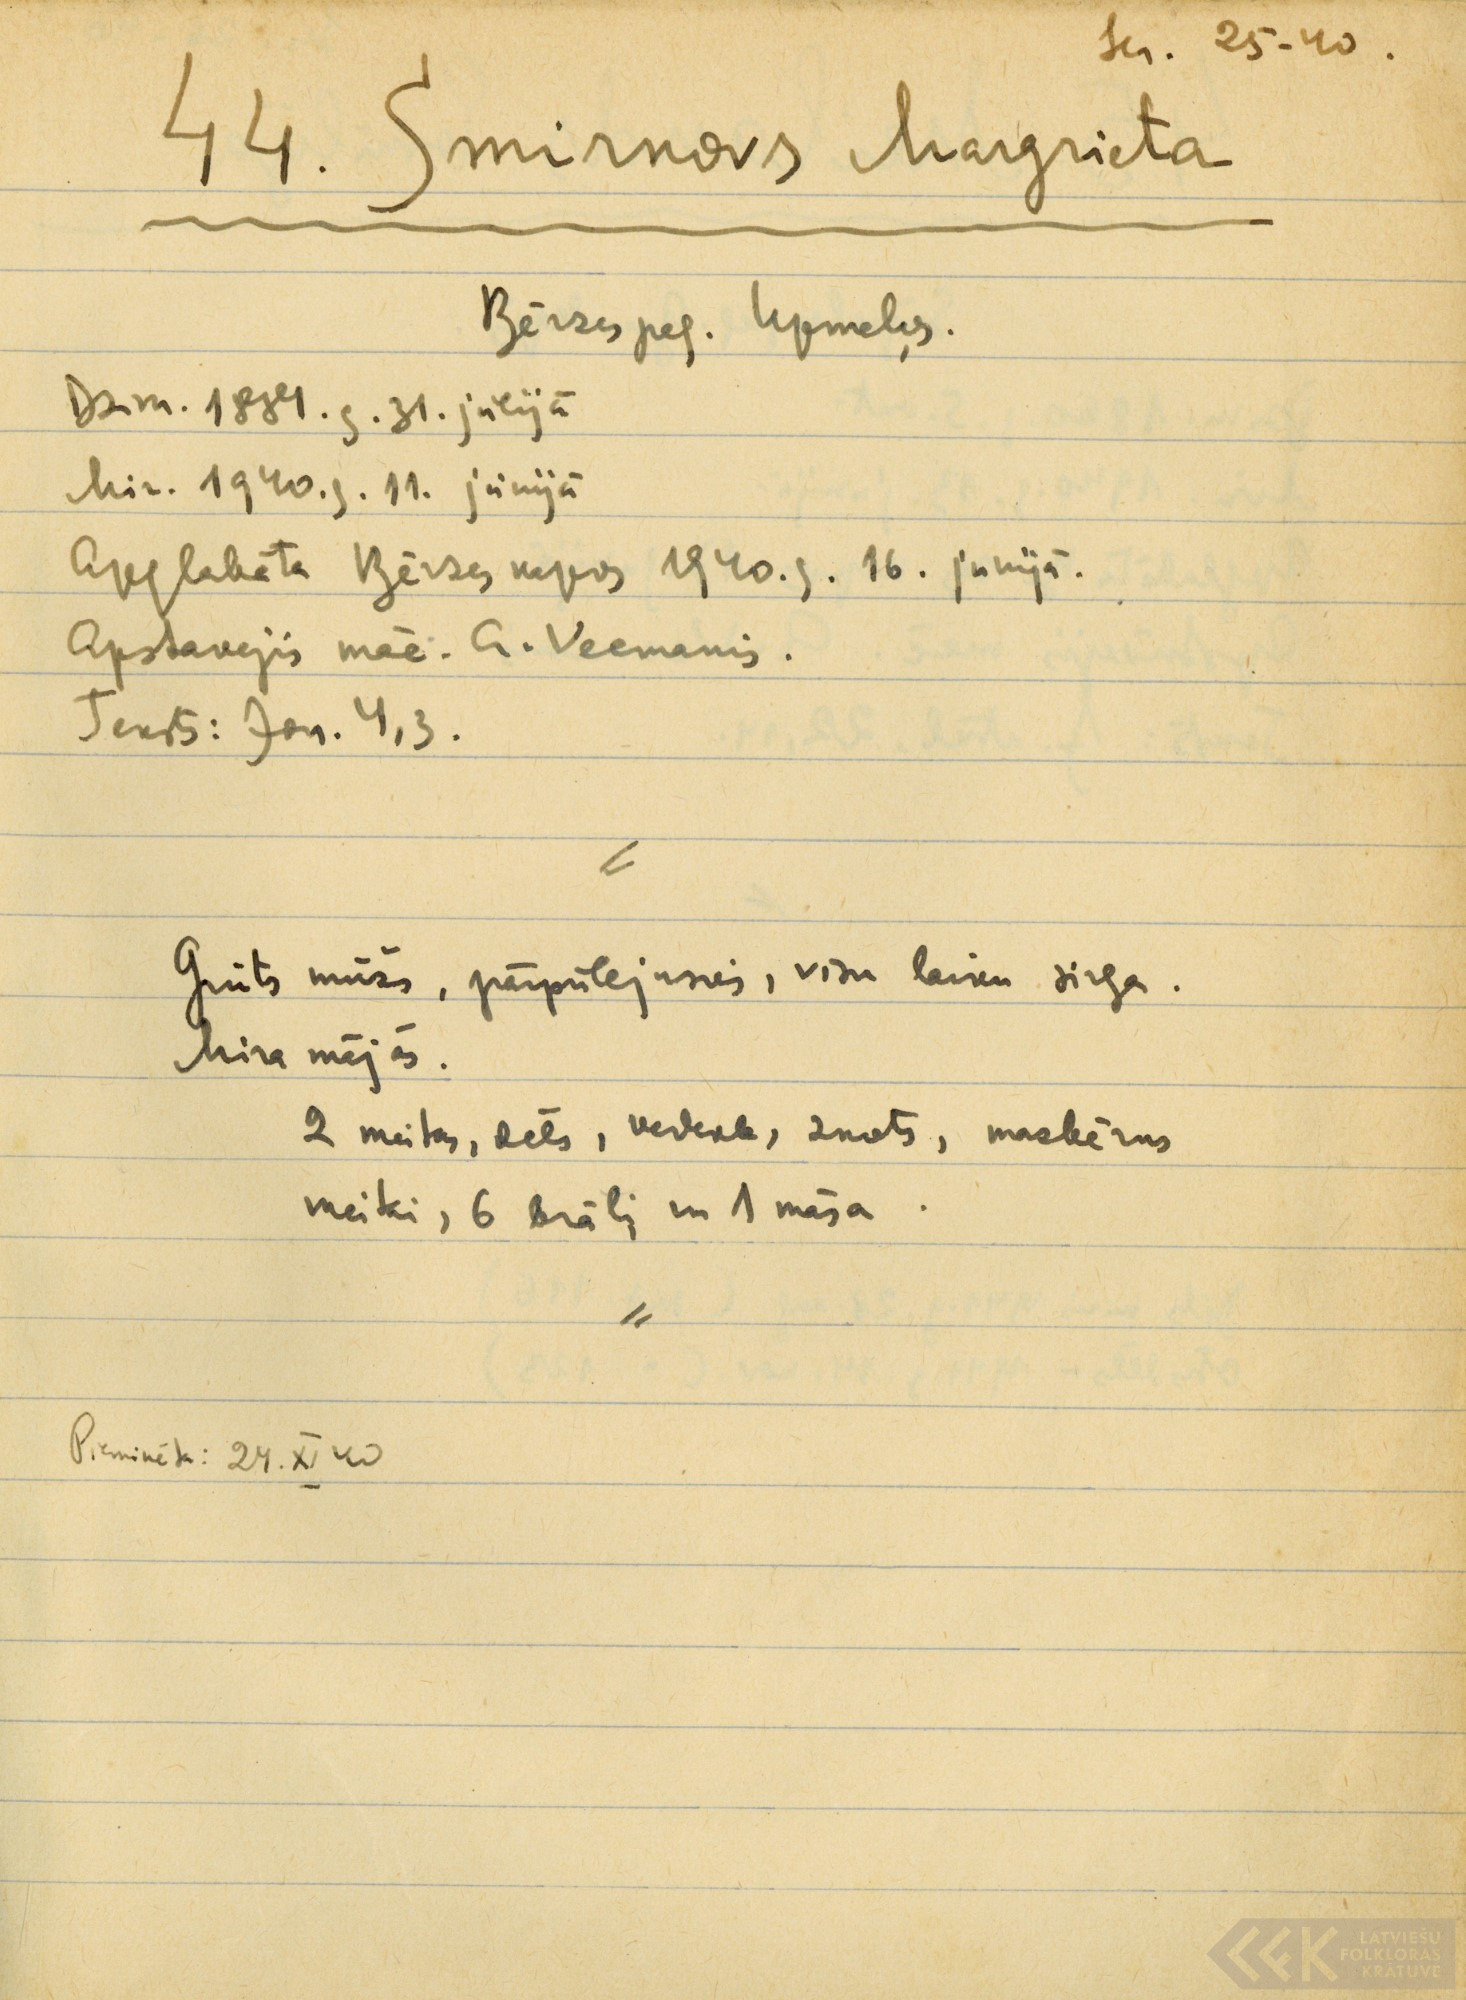 Ser. 25-40.
44. Smirnovs Margrieta
Bērzes pag. Upmaļos.
Dzim. g. 31. jūlijā
Mir. 1940.g. 11. jūnijā
Apglabāta Bērzes kapos 1940.g. 16. jūnijā.
Apstāvējis māc. A. Veemanis.
Teksts: Jon. 4,3.
Grūts mūžs, pārpūlējusies, visu laiku sirga.
Mira mājās.
2 meitas, dēls, vedekla, znots, mazbērns
meiki, 6 brāļi un 1 māsa.
"
Pieminēta: 24. XI 40
LATVIEŠU
FOLKLORAS
KRĀTUVE